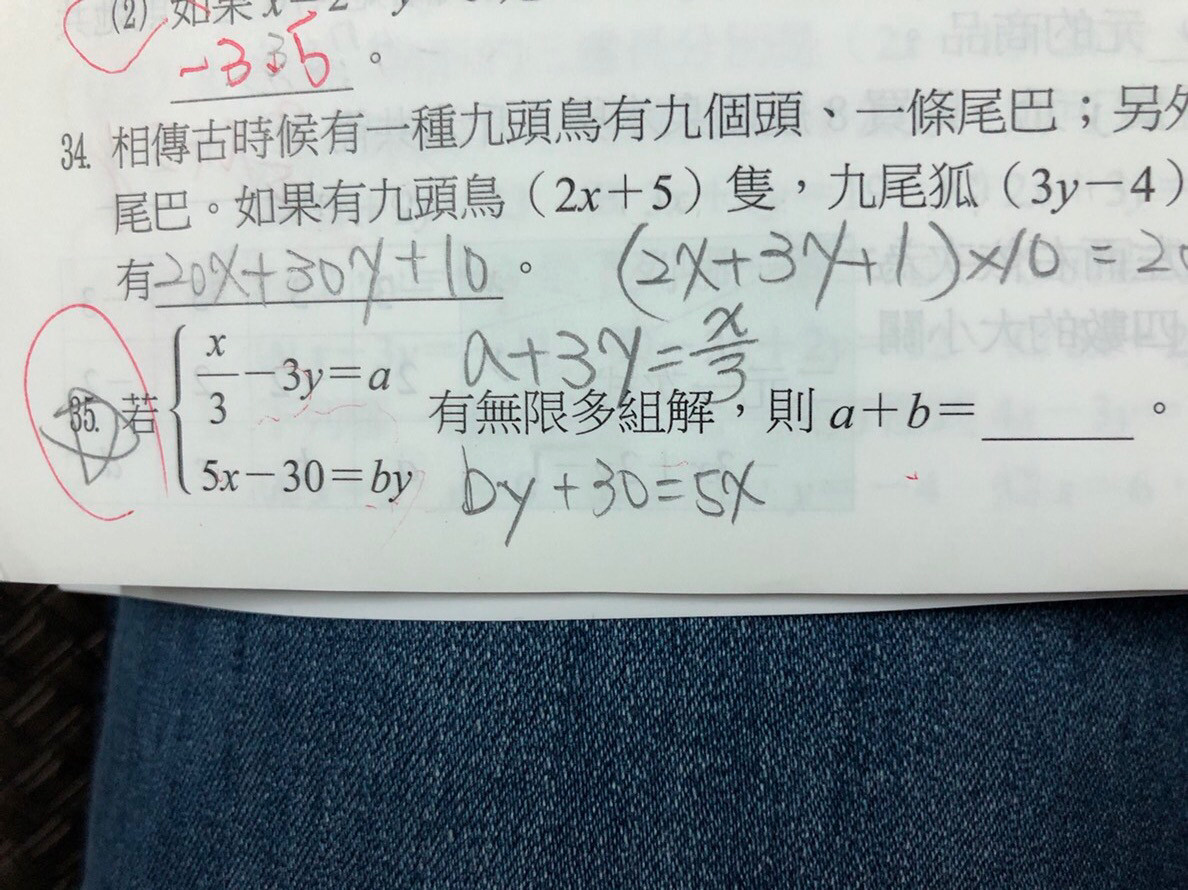 (2) 如果 x-2
-3.5 。
34. 相傳古時候有一種九頭鳥有九個頭、一條尾巴；另外
尾巴。如果有九頭鳥（2x+5）隻，九尾狐（3y-4）
有20x+30y+10。 (2x+3y+1)×10=20
35. 若 { x/3 -3y=a 有無限多組解，則 a+b= ______ 。
a+3y=x/3
5x-30=by
by+30=5x